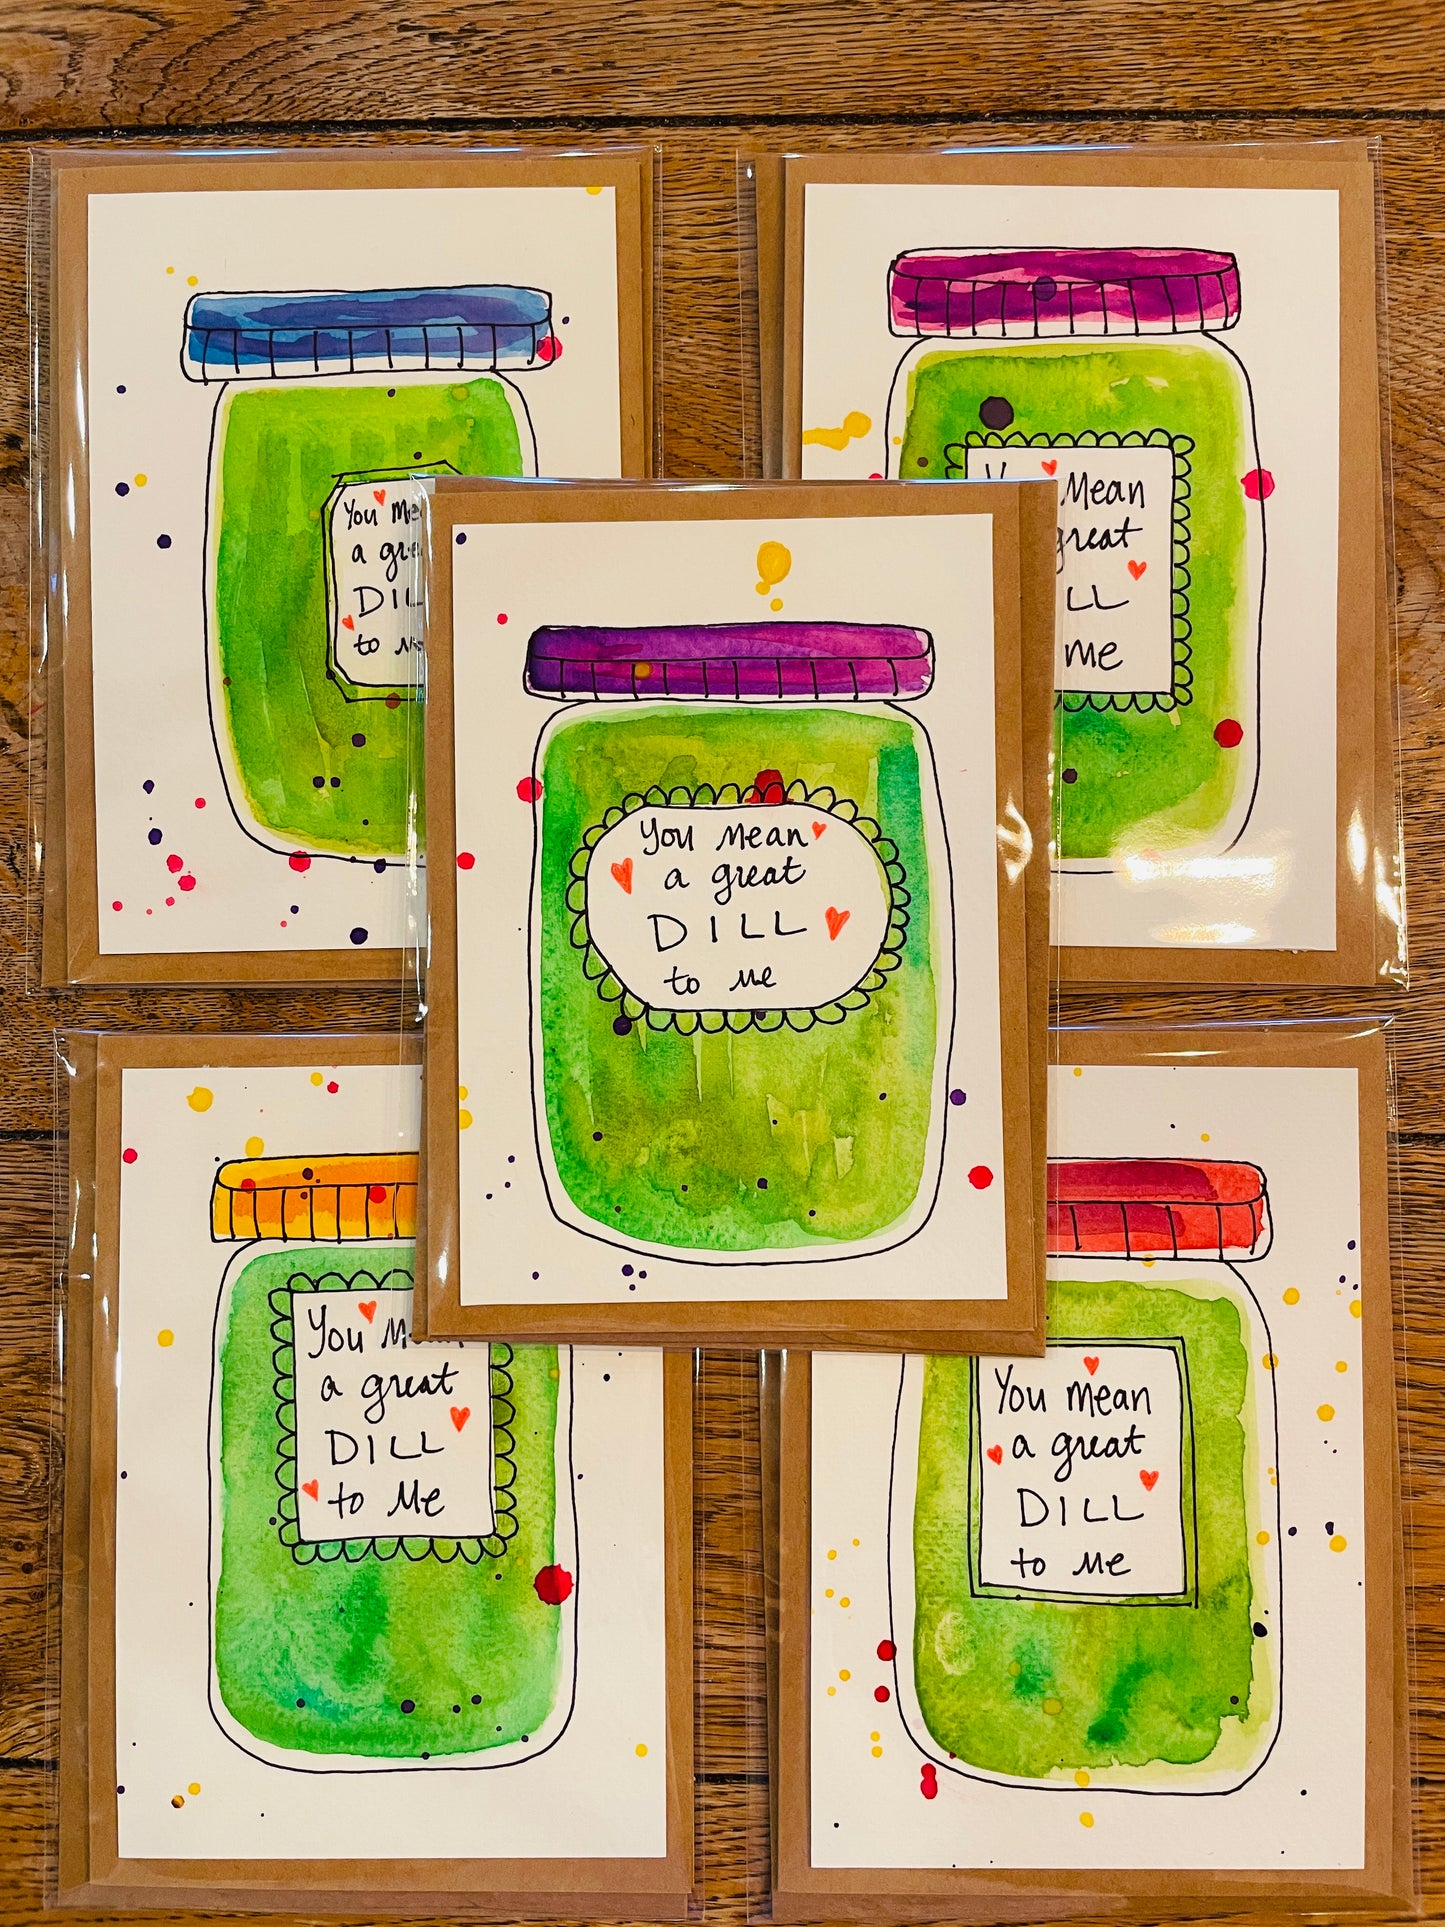 You
a
DIL
to
Mean
great
LL
me
You Mean
a great
DILL
to Me
You
a great
DILL
to Me
You Mean
a great
DILL
to Me